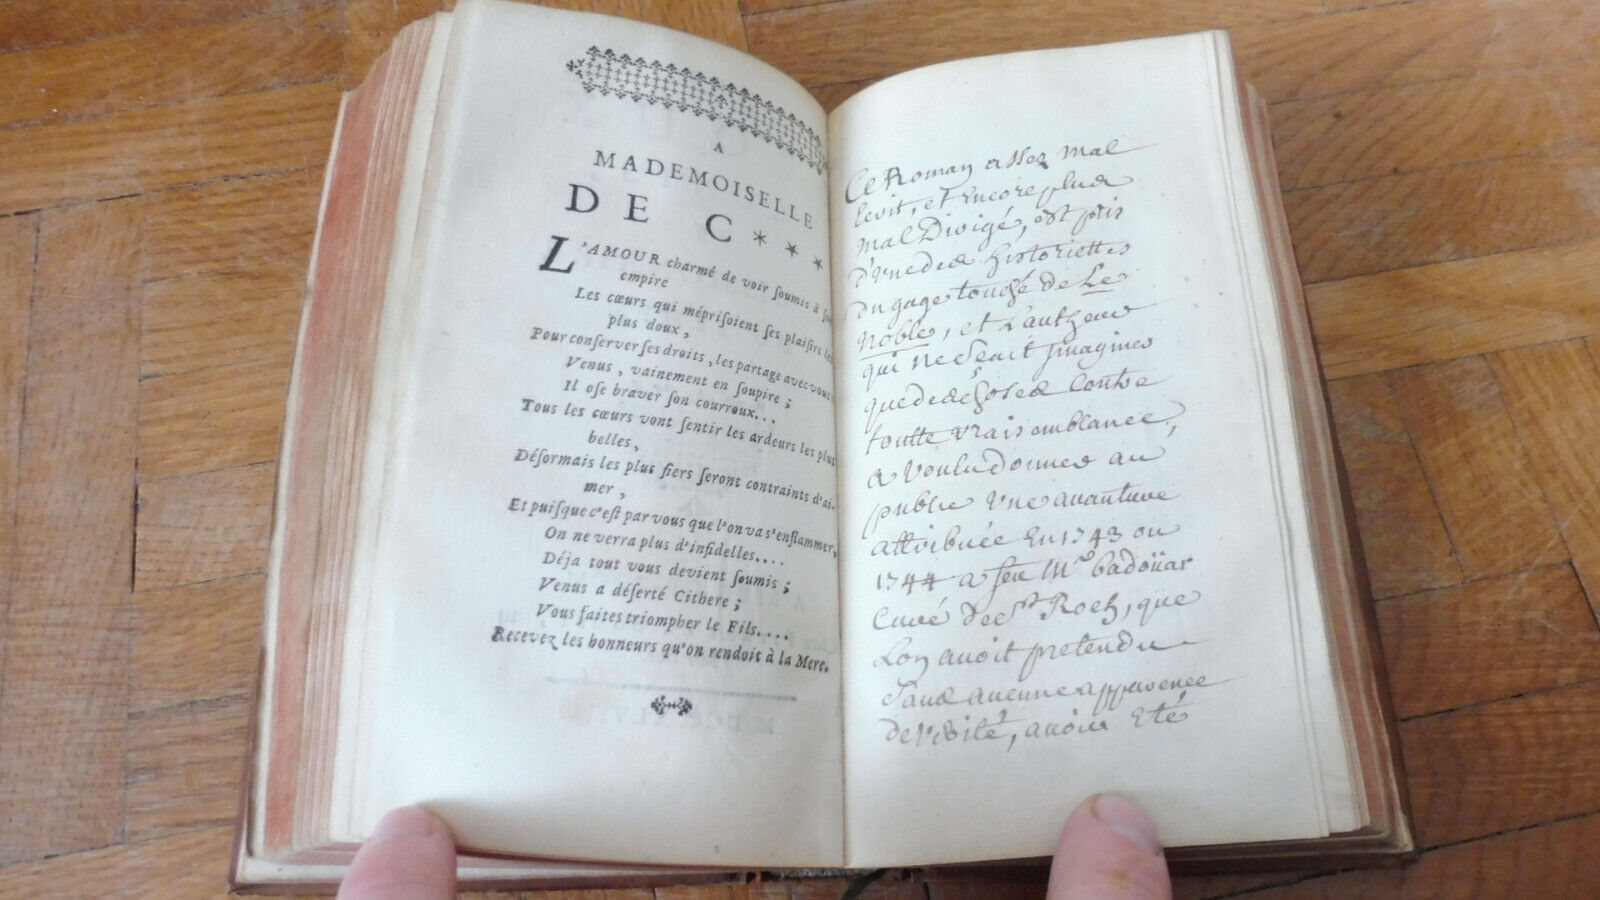 A
MADEMOISELLE
DE C * * *
L'AMOUR charmé de voir ſoumis à ſon
empire
Les cœurs qui mépriſoient ſes plaiſirs les
plus doux,
Pour conſerver ſes droits, les partage avec vous:
Venus, vainement en ſoupire;
Il oſe braver ſon courroux...
Tous les cœurs vont ſentir les ardeurs les plus
belles,
Déſormais les plus fiers ſeront contraints d'ai-
mer,
Et puiſque c'eſt par vous que l'on va s'enflammer,
On ne verra plus d'infidelles....
Déja tout vous devient ſoumis;
Venus a déſerté Cithere;
Vous faites triompher le Fils....
Recevez les honneurs qu'on rendoit à la Mere.
Ce Roman assez mal
Ecrit, et Encore plus
mal Dirigé, est pris
d'une des historiettes
du gage touché de Le
Noble, et L'autheur
qui ne Scait imaginer
que des choses Contre
toutte vraisemblance,
a voulu donner au
public une avanture
attribuée En 1743 ou
1744 a feu Mr badoüar
Curé de St Roch, que
Lon avoit pretendu
Sans aucune apparence
de verité, avoir Eté